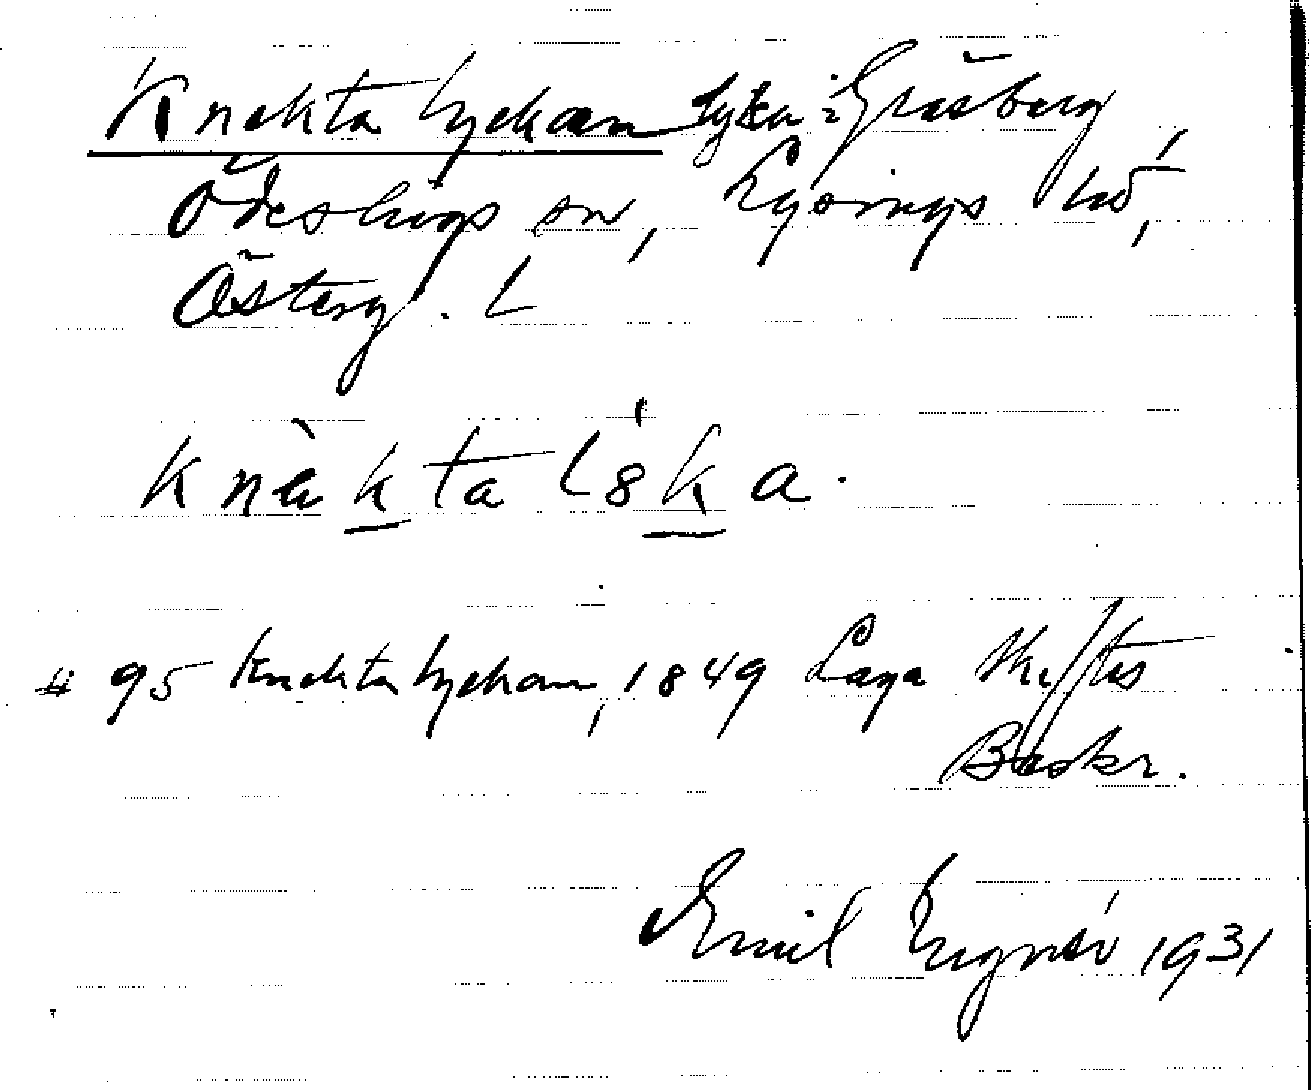 Knektalyckan lyka i Gråsberg,
Ödeshögs sn, Lysings hd,
Österg. L
knèktalˈ8ka.
# 95 Knektalyckan, 1849 Laga Skiftes
Beskr.
Emil 1931